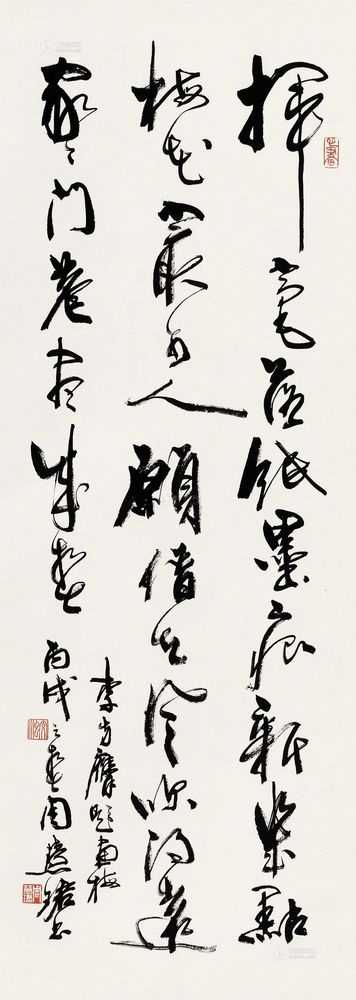 揮毫落紙墨痕新幾點
梅花最可人願借天風吹得遠
家家門巷盡成春
李方膺題畫梅
丙戌之春周慧珺書